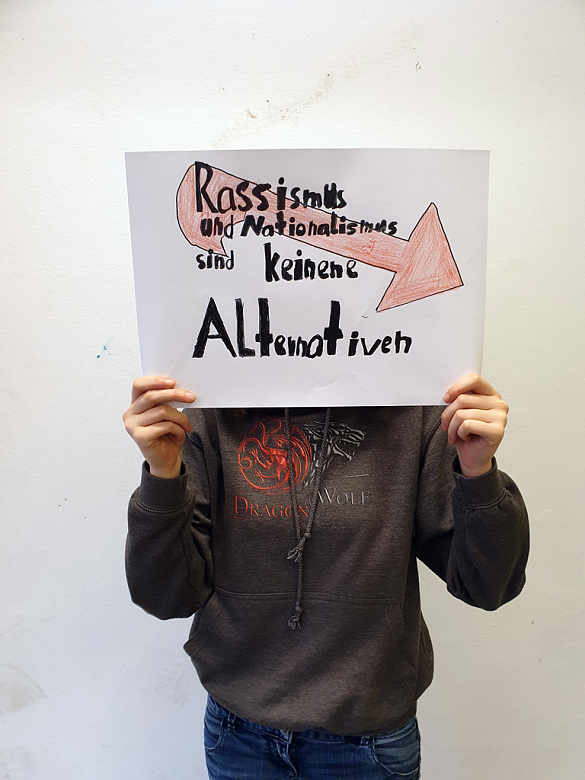 Rassismus
und Nationalismus
sind keinene
ALternativen
DRAGON WOLF